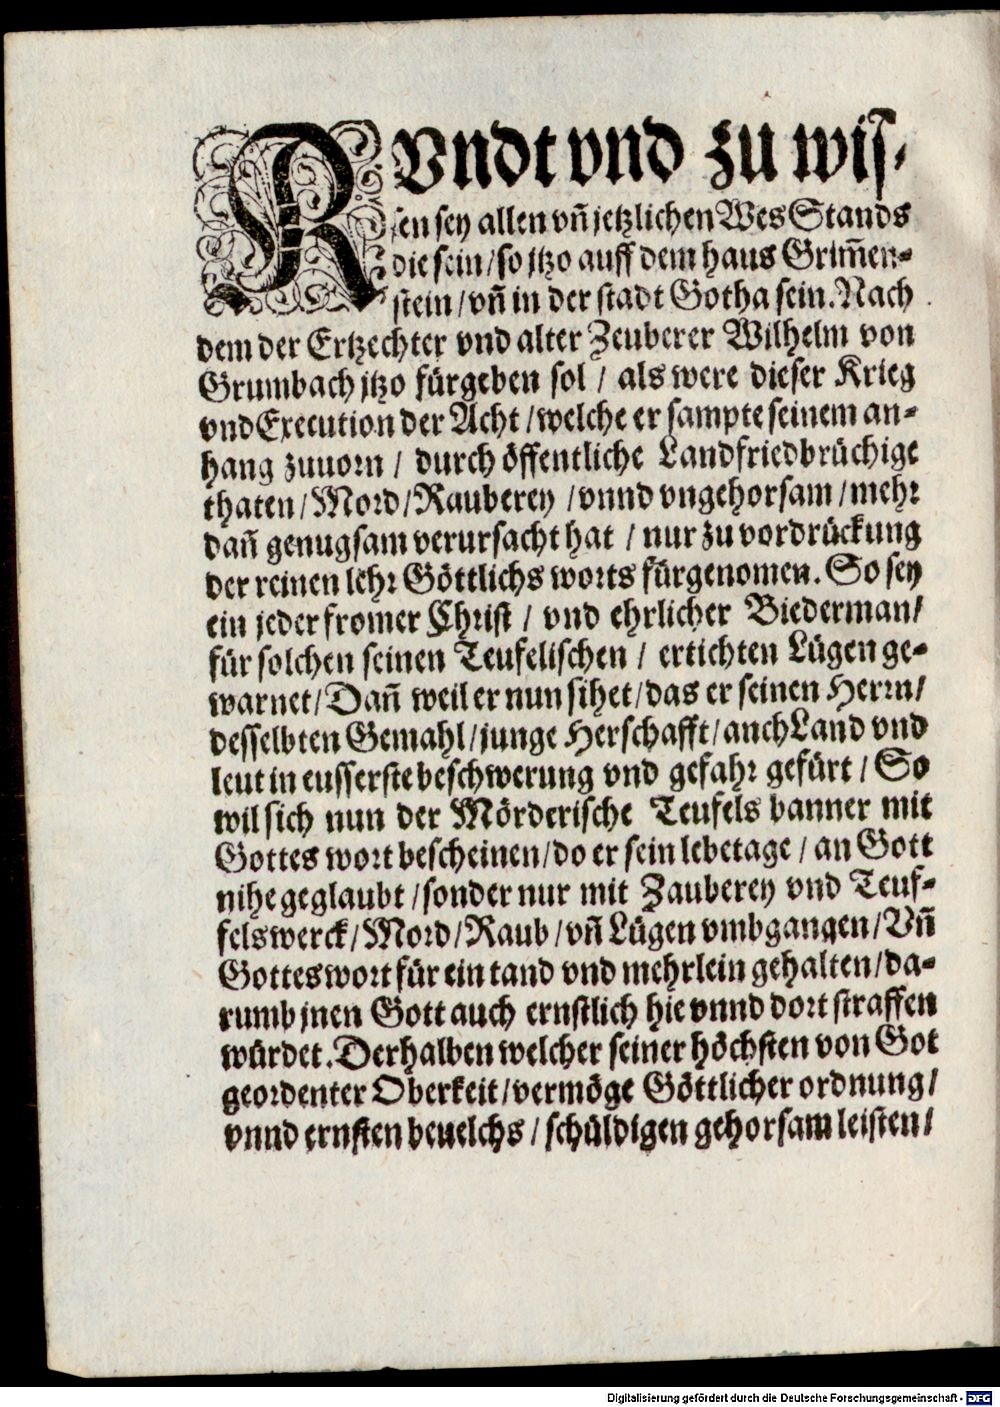 KVndt vnd zu wis-
sen sey allen vn̄ jetzlichen Wes Stands
die sein / so jtzo auff dem haus Grim̄en-
stein / vn̄ in der stadt Gotha sein. Nach
dem der Ertzechter vnd alter Zeuberer Wilhelm von
Grumbach jtzo fürgeben sol / als were dieser Krieg
vnd Execution der Acht / welche er sampte seinem an-
hang zuuorn / durch öffentliche Landfriedbrüchige
thaten / Mord / Rauberey / vnnd vngehorsam / mehr
dan̄ genugsam verursacht hat / nur zu vordrückung
der reinen lehr Göttlichs worts fürgenomen. So sey
ein jeder fromer Christ / vnd ehrlicher Biederman /
für solchen seinen Teufelischen / ertichten Lügen ge-
warnet / Dan̄ weil er nun sihet / das er seinen Herrn /
desselbten Gemahl / junge Herschafft / anch Land vnd
leut in eusserste beschwerung vnd gefahr gefürt / So
wil sich nun der Mörderische Teufels banner mit
Gottes wort bescheinen / do er sein lebetage / an Gott
nihe geglaubt / sonder nur mit Zauberey vnd Teuf-
felswerck / Mord / Raub / vn̄ Lügen vmbgangen / Vn̄
Gottes wort für ein tand vnd mehrlein gehalten / da-
rumb jnen Gott auch ernstlich hie vnnd dort straffen
würdet. Derhalben welcher seiner höchsten von Got
geordenter Oberkeit / vermöge Göttlicher ordnung /
vnnd ernsten beuelchs / schüldigen gehorsam leisten /
Digitalisierung gefördert durch die Deutsche Forschungsgemeinschaft - DFG